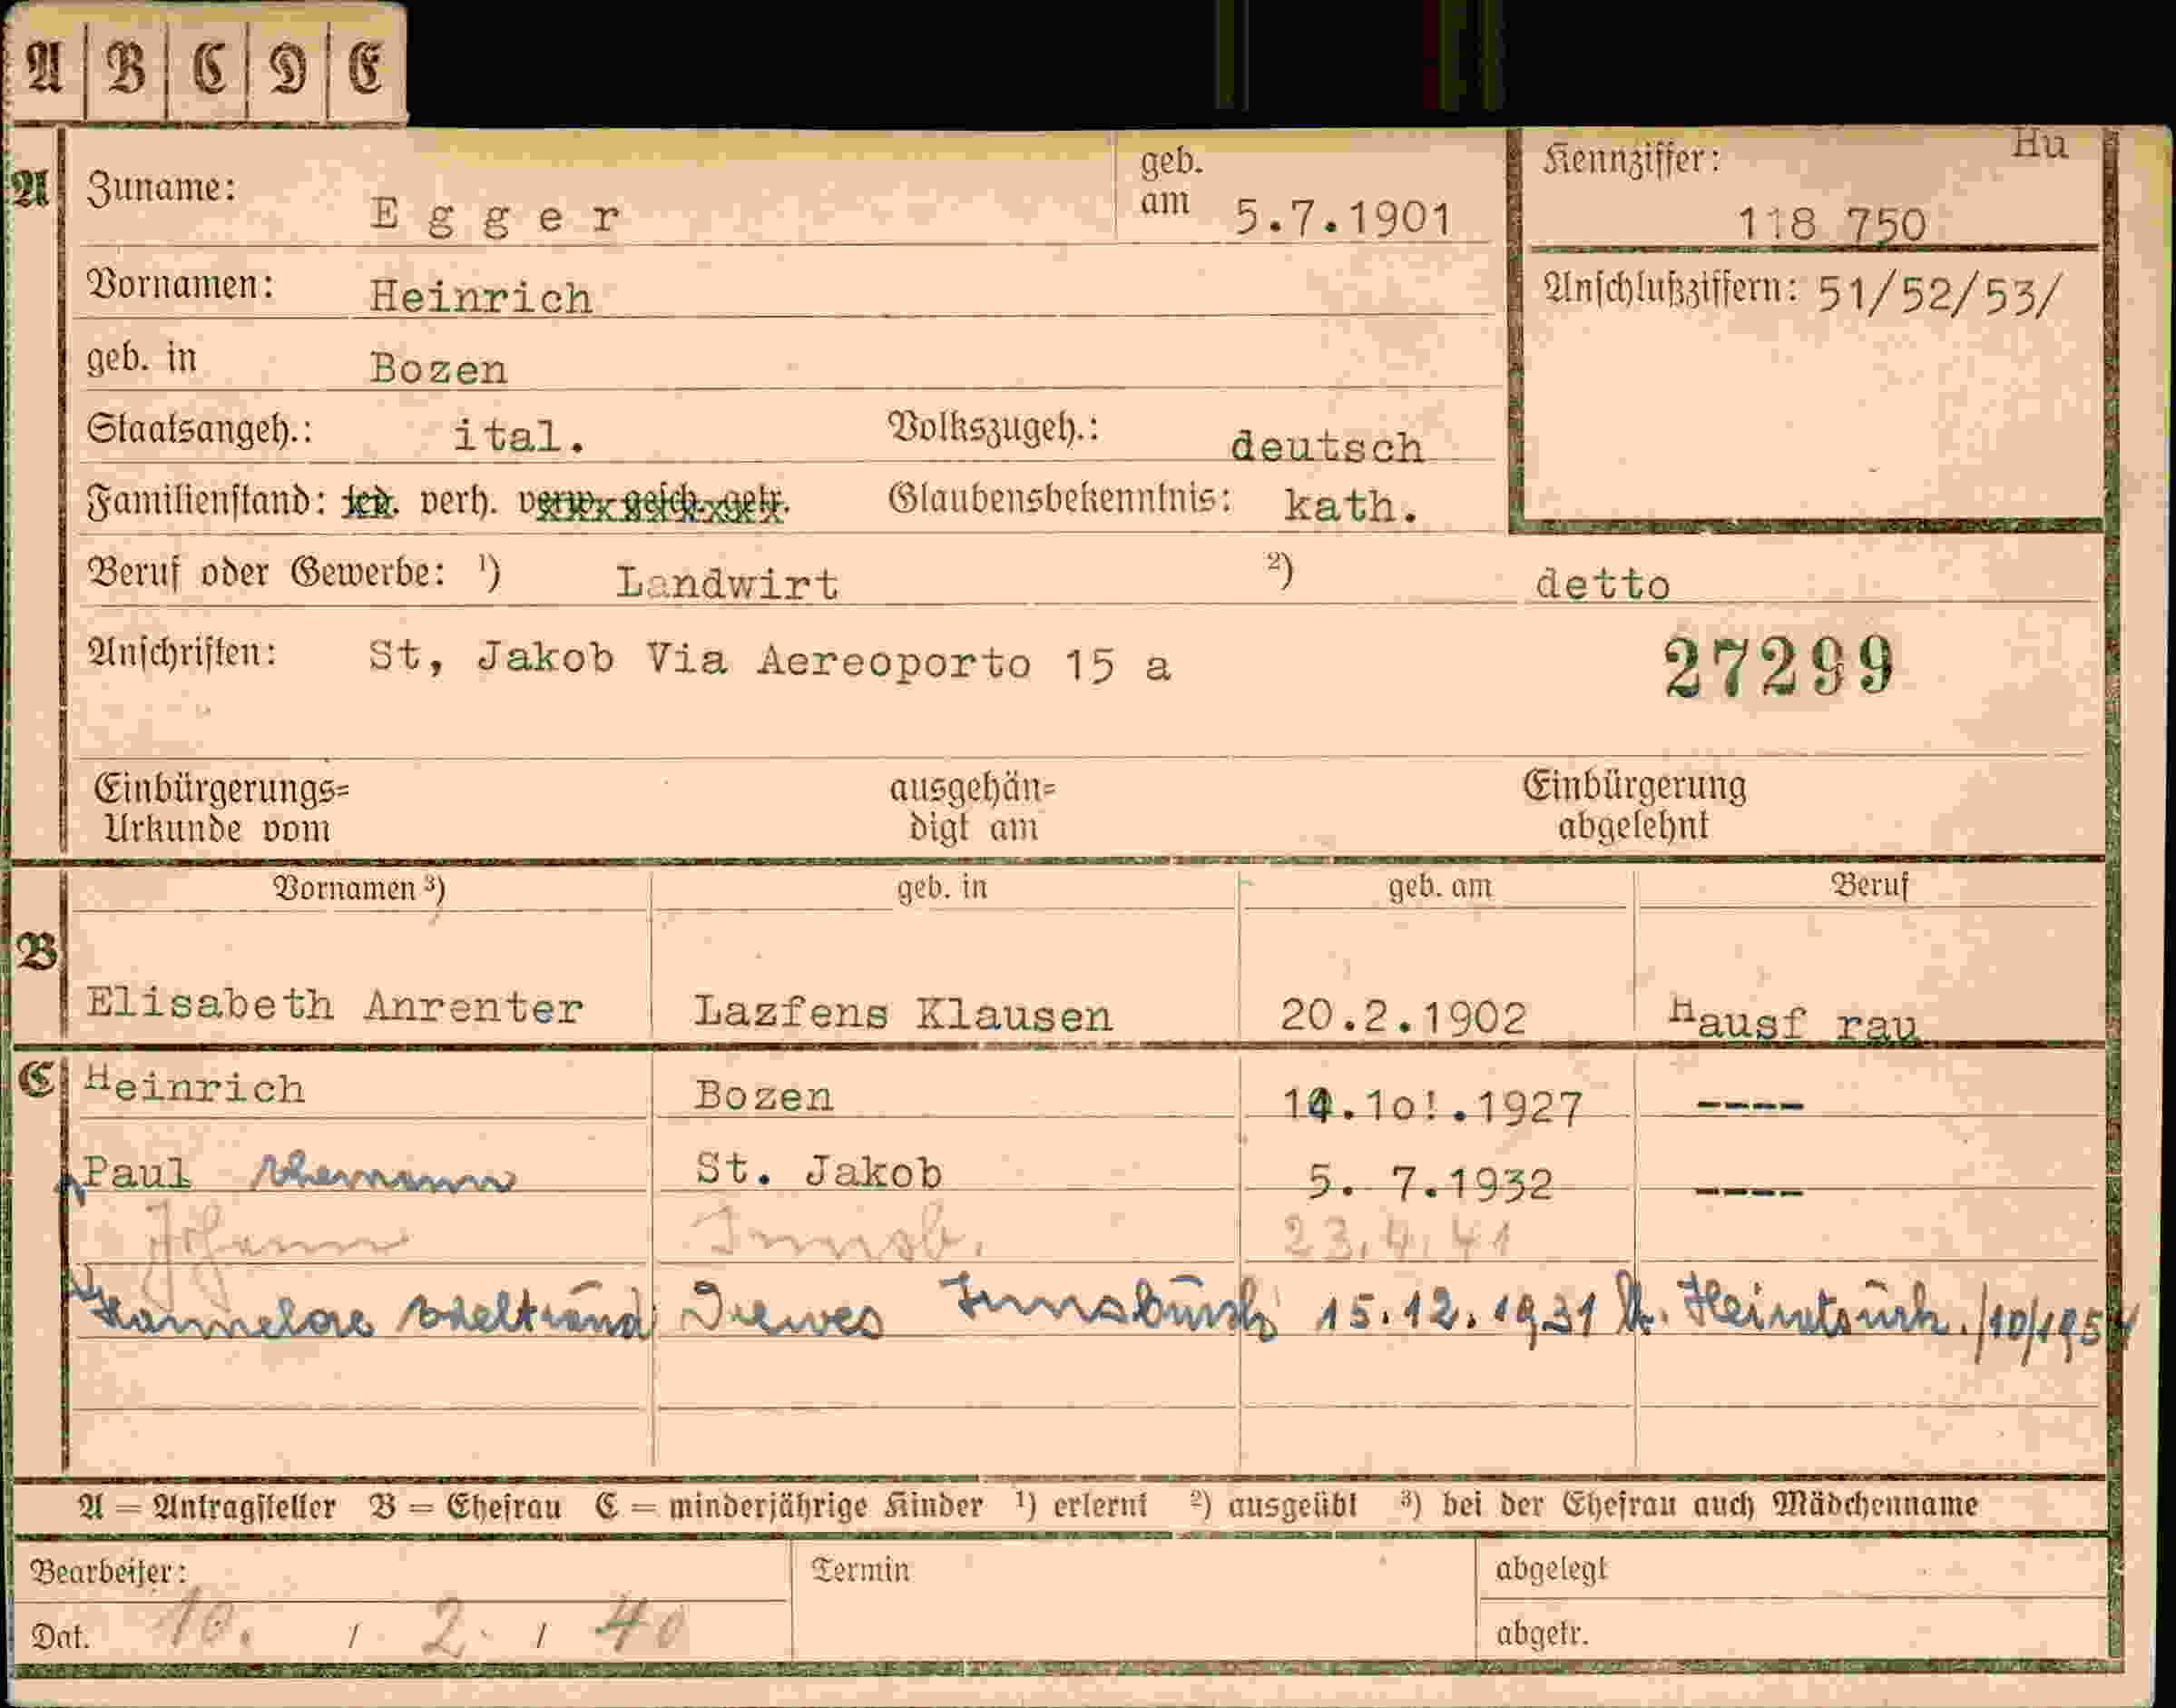 A B C D E
A Zuname: Egger geb. am 5.7.1901
Kennziffer: Hu
118 750
Vornamen: Heinrich
Anschlußziffern: 51/52/53/
geb. in Bozen
Staatsangeh.: ital. Volkszugeh.: deutsch
Familienstand: led. verh. verw. gesch. getr. Glaubensbekenntnis: kath.
Beruf oder Gewerbe: ¹) Landwirt ²) detto
Anschriften: St, Jakob Via Aereoporto 15 a 27299
Einbürgerungs=
Urkunde vom
ausgehän=
digt am
Einbürgerung
abgelehnt
Vornamen ³) geb. in geb. am Beruf
B
Elisabeth Anrenter Lazfens Klausen 20.2.1902 Hausf rau
C Heinrich Bozen 14.10!.1927 ----
Paul St. Jakob 5. 7.1932 ----
Johann Innsb. 23.4.41
Hannelore Innsbruck 15.12.1931 /10/1954
A = Antragsteller B = Ehefrau C = minderjährige Kinder ¹) erlernt ²) ausgeübt ³) bei der Ehefrau auch Mädchenname
Bearbeiter: Termin abgelegt
Dat. 10. / 2. / 40 abgetr.